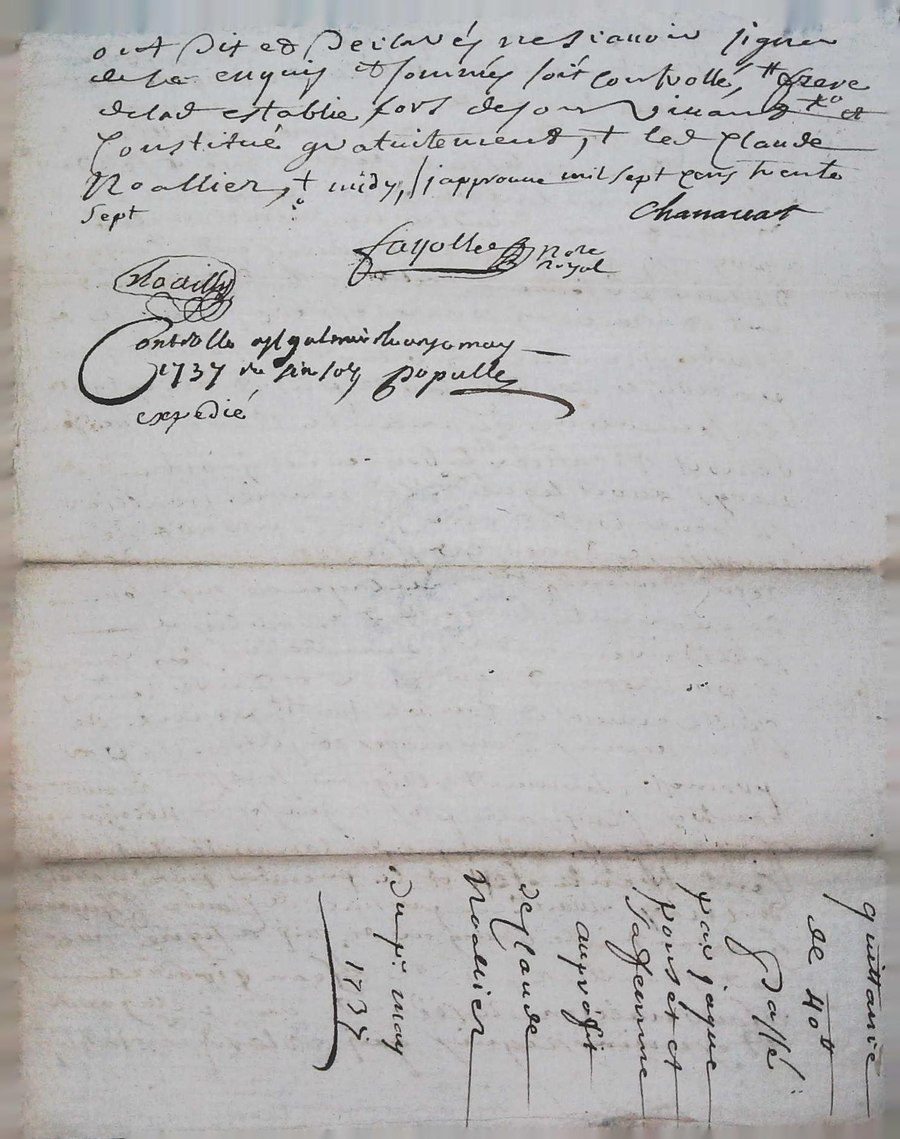 ont Dit et Declarés ne scavoir signer
de ce enquis & sommés soit controllé, # frere
delad establie fors dejour vivant to et
Constitué gratuitement, + led Claude
Noallier, + midy, / japprouve mil sept cens trente
sept
Chanavat
fayolle No.re
Royal
Noailly
Controlle a st galmier le may
1737 ru six sols Populle
expedié
quittance
de 40 tt
Passé
par jaque
ponset et
sa femme
au profit
de Claude
Noallier
Du pr. may
1737